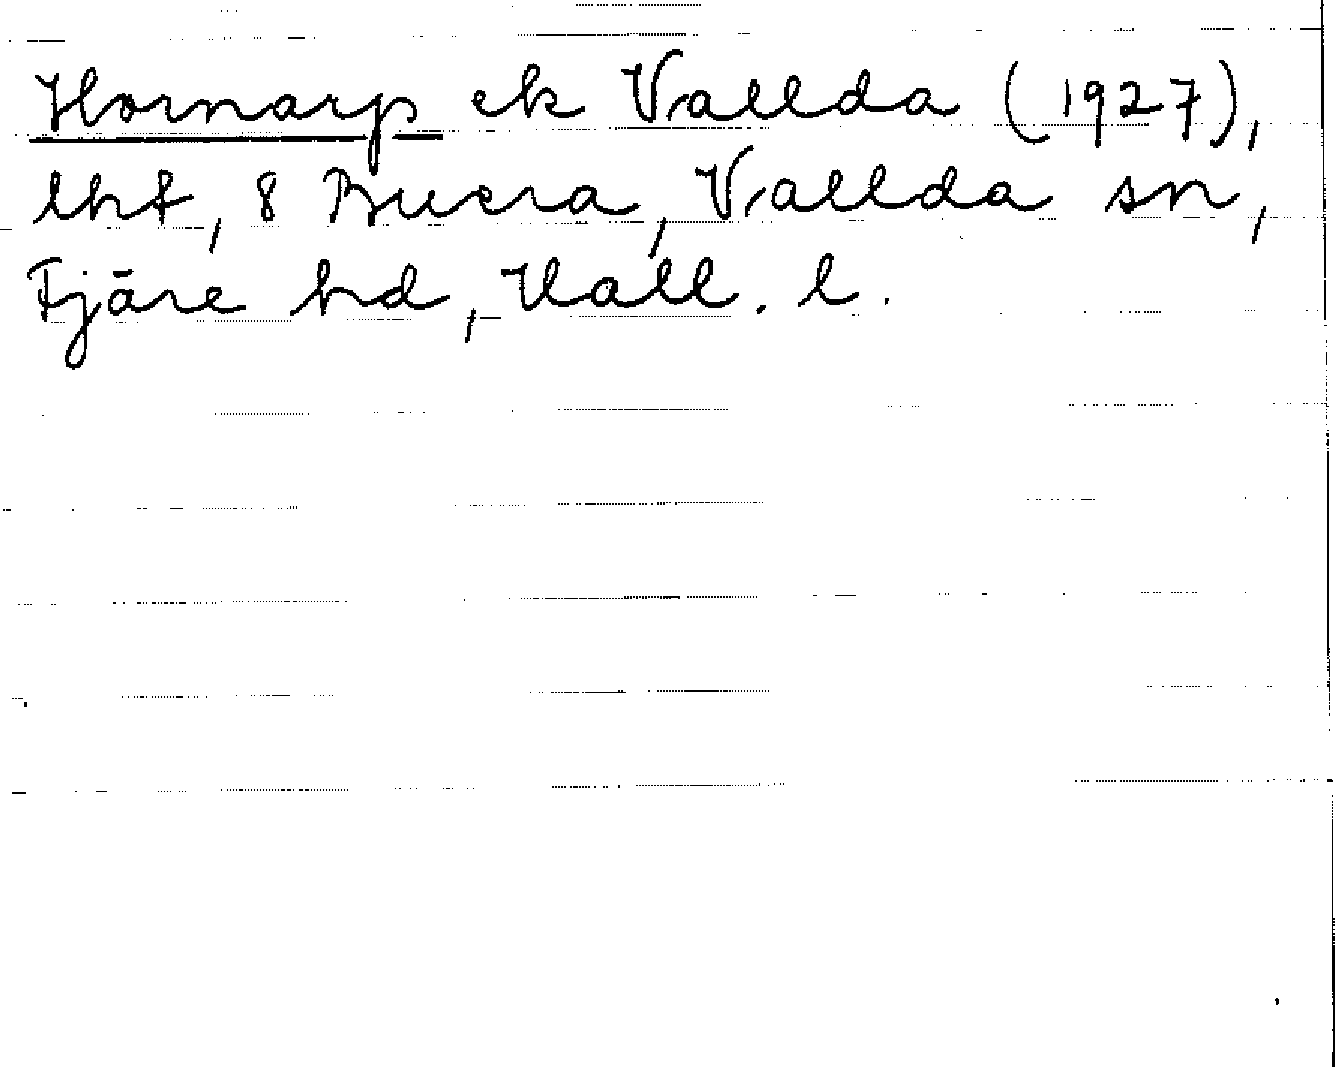 Hornarp ek Vallda (1927),
lht, 8 Buera, Vallda sn,
Fjäre hd, Hall. l.